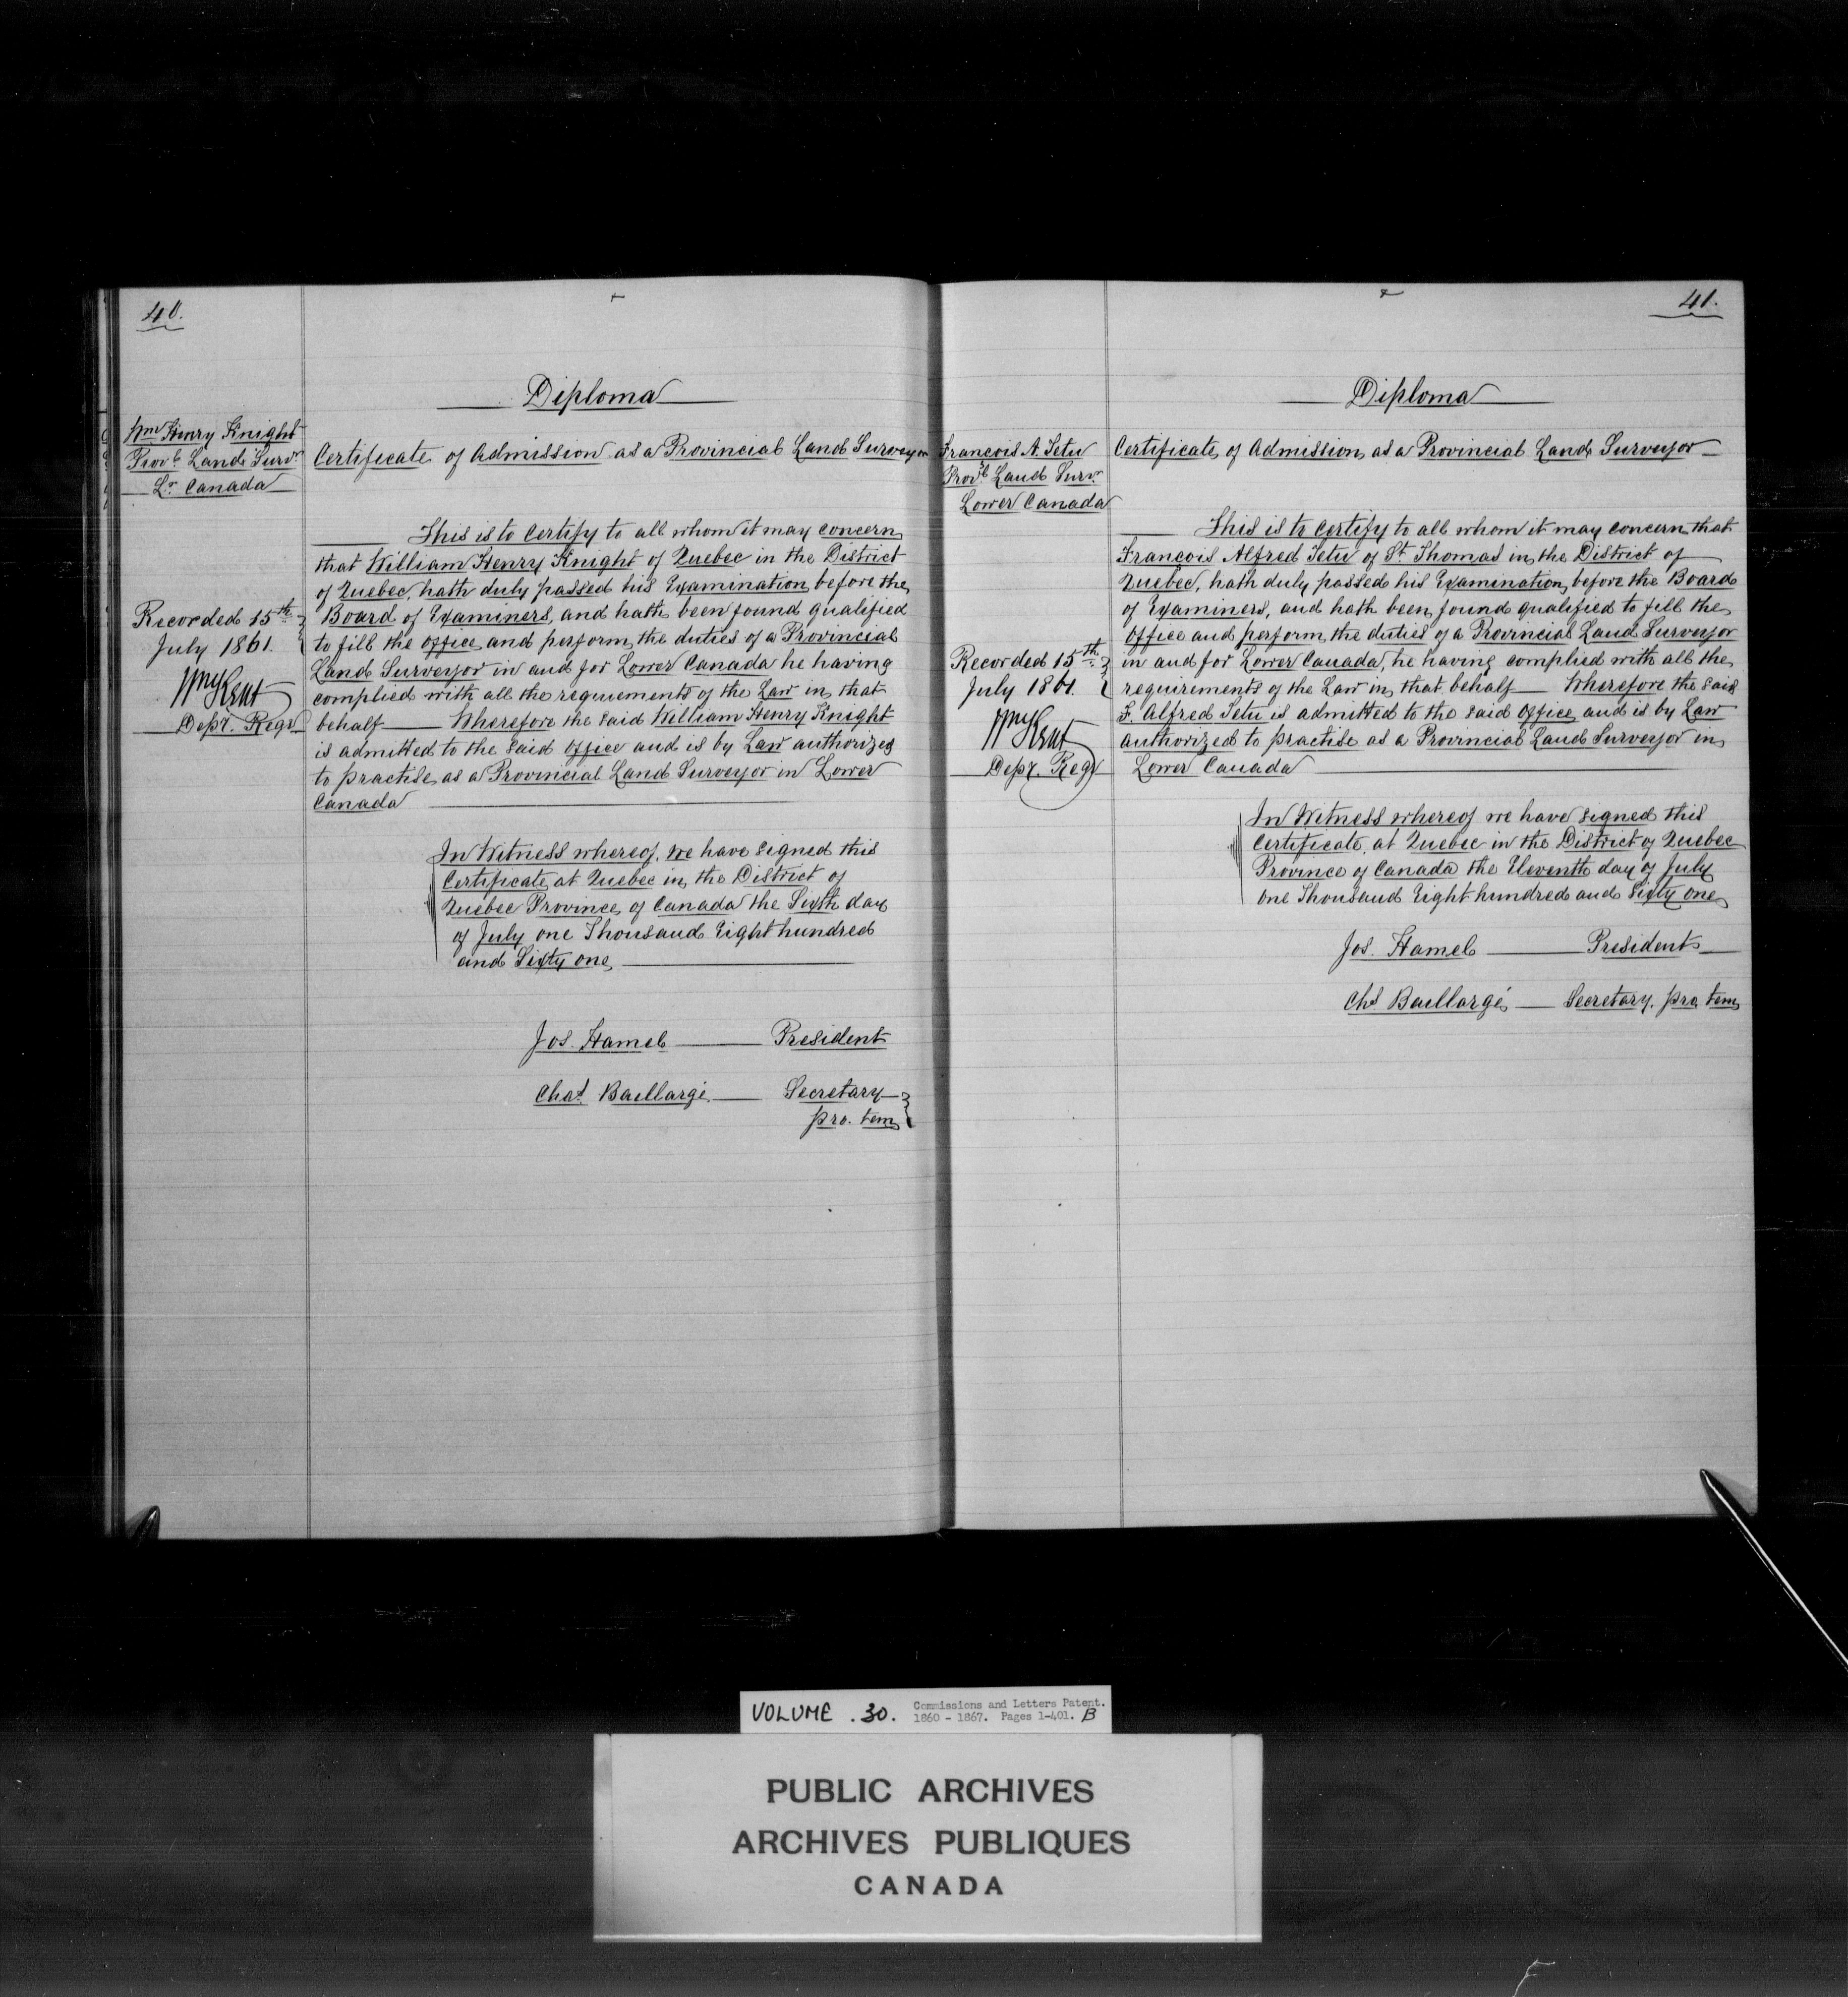 40.
Diploma
Wm Henry Knight
Provl. Land Survr
Lr. Canada
Certificate of Admission as a Provincial Land Surveyor
This is to Certify to all whom it may concern
that William Henry Knight of Quebec in the District
of Quebec, hath duly passed his Examination before the
Board of Examiners, and hath been found qualified
to fill the office and perform the duties of a Provincial
Land Surveyor in and for Lower Canada he having
complied with all the requirements of the Law in that
behalf — Wherefore the said William Henry Knight
is admitted to the said office and is by Law authorized
to practise as a Provincial Land Surveyor in Lower
Canada
Recorded 15th
July 1861.
Wm Kent
Depy. Regr
In Witness whereof, we have signed this
Certificate at Quebec in the District of
Quebec Province of Canada the Sixth day
of July one Thousand Eight hundred
and Sixty one
Jos. Hamel — President
Chas. Baillargé — Secretary
pro. tem
41.
Diploma
Francois A. Tetu
Provl. Land Survr.
Lower Canada
Certificate of Admission as a Provincial Land Surveyor
This is to Certify to all whom it may concern that
Francois Alfred Tetu of St. Thomas in the District of
Quebec, hath duly passed his Examination before the Board
of Examiners, and hath been found qualified to fill the
office and perform the duties of a Provincial Land Surveyor
in and for Lower Canada, he having complied with all the
requirements of the Law in that behalf — Wherefore the said
F. Alfred Tetu is admitted to the said office and is by Law
authorized to practise as a Provincial Land Surveyor in
Lower Canada
Recorded 15th
July 1861.
Wm Kent
Depy. Regr
In Witness whereof we have signed this
Certificate, at Quebec in the District of Quebec
Province of Canada the Eleventh day of July
one Thousand Eight hundred and Sixty one
Jos. Hamel — President
Chs Baillargé — Secretary. pro. tem
VOLUME .30. Commissions and Letters Patent.
1860 - 1867. Pages 1-401. B
PUBLIC ARCHIVES
ARCHIVES PUBLIQUES
CANADA